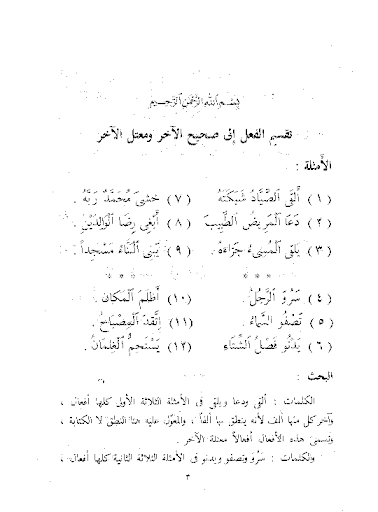 بسم الله الرحمن الرحيم
تقسيم الفعل إلى صحيح الآخر ومعتل الآخر
الأمثلة :
(١) أَلْقَى الصَّيَّادُ شَبَكَتَهُ (٧) خشِىَ مُحَمَّدٌ رَبَّهُ .
(٢) دَعَا الْمَرِيضُ الطَّبِيبَ (٨) أَبْغِى رِضَا الْوَالِدَيْنِ .
(٣) يَلقَى الْمُسِىءُ جَزَاءَهُ . (٩) يَبْنِى الْبَنَّاءُ مَسْجِداً .
* * *
(٤) سَرُوَ الرَّجُلُ . (١٠) أَظْلَمَ الْمَكَان .
(٥) تَصْفُو السَّمَاءُ . (١١) اِتَّقَدَ الْمِصْبَاحُ .
(٦) يَدْنُو فَصْلُ الشِّتَاءِ (١٢) يَسْتَحِمُّ الْغِلْمَانُ .
البحث :
الكلمات : ألقى ودعا ويلقى فى الأمثلة الثلاثة الأول كلها أفعال ،
وآخر كل منها ألف لأنه ينطق بها ألفاً ، والمعوّل عليه هنا النطق لا الكتابة ،
وتسمى هذه الأفعال أفعالاً معتلة الآخر .
والكلمات : سَرُوَ وتصفو ويدنو فى الأمثلة الثلاثة الثانية كلها أفعال ،
٣